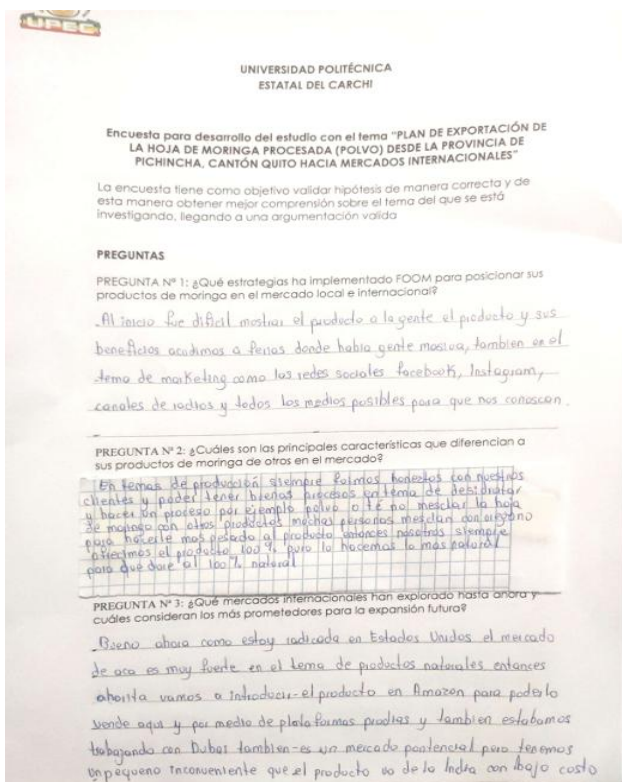 UPEC
UNIVERSIDAD POLITÉCNICA
ESTATAL DEL CARCHI
Encuesta para desarrollo del estudio con el tema "PLAN DE EXPORTACIÓN DE
LA HOJA DE MORINGA PROCESADA (POLVO) DESDE LA PROVINCIA DE
PICHINCHA, CANTÓN QUITO HACIA MERCADOS INTERNACIONALES"
La encuesta tiene como objetivo validar hipótesis de manera correcta y de
esta manera obtener mejor comprensión sobre el tema del que se está
investigando, llegando a una argumentación valida
PREGUNTAS
PREGUNTA Nº 1: ¿Qué estrategias ha implementado FOOM para posicionar sus
productos de moringa en el mercado local e internacional?
Al inicio fue dificil mostrar el producto a la gente el producto y sus
beneficios acudimos a ferias donde habia gente masiva, tambien en el
tema de marketing como las redes sociales facebook, Instagram,
canales de radios y todos los medios posibles para que nos conoscan.
PREGUNTA Nº 2: ¿Cuáles son las principales características que diferencian a
sus productos de moringa de otros en el mercado?
En temas de producción siempre fuimos honestos con nuestros
clientes y poder tener buenos procesos en tema de deshidratar
y hacer un proceso por ejemplo polvo o té no mesclar la hoja
de moringa con otros productos muchas personas mesclan con oregano
para hacerle mas pesado al producto entonces nosotros siempre
ofrecimos el producto 100% puro lo hacemos lo mas natural
para que dure al 100% natural
PREGUNTA Nº 3: ¿Qué mercados internacionales han explorado hasta ahora y
cuáles consideran los más prometedores para la expansión futura?
Bueno ahora como estoy radicada en Estados Unidos el mercado
de aca es muy fuerte en el tema de productos naturales entonces
ahorita vamos a introducir el producto en Amazon para poderlo
vende aqui y por medio de plataformas propias y tambien estabamos
trabajando con Dubai tambien es un mercado pontencial pero tenemos
un pequeno inconveniente que el producto va de la India con bajo costo